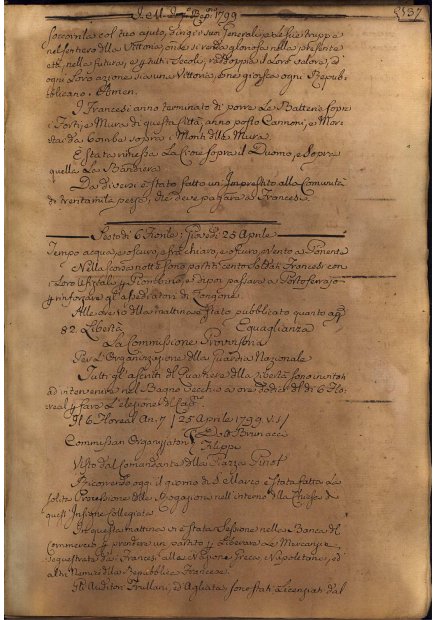 1799
soccorrila col tuo ajuto, dirigi i suoi Generali, e le sue truppe
nel sentiero della Vittoria, onde si renda gloriosa nella presente
età, nella futura, e tutti i Secoli, raddoppia il loro valore, ed
ogni loro azione sia una Vittoria, che gioisca ogni Repub=
blicano. Amen.
I Francesi anno terminato di porre le Batterie sopra
i Forti, e Mura di questa Città, anno posto Cannoni, e Mor=
tai da bomba sopra i Monti della Mura.
È stata rimessa la Croce sopra il Duomo, e sopra
quella la Bandiera
Da diversi è stato fatto un Imprestito alla Comunità
di ventamila pezze, che deve pagare a Francesi
Sestodì 6 Fiorile: Giovedì 25 Aprile
Tempo acqua, e oscuro, chiaro, e oscuro, vento a Ponente
Nella scorsa notte sono partiti cento Soldati Francesi con
i loro Ufiziali p Piombino, e di poi passare a Portoferrajo
p rinforzare gl'assediatori di Longone.
Alle ore della mattina è stato pubblicato quanto ap:
82. Libertà Eguaglianza
La Commissione Provvisoria
Per l'Organizazione della Guardia Nazionale
Tutti gl'ascritti del Quartiere della Libertà sono invitati
ad intervenire nel Bagno Vecchio a ore dodici del dì 6 Flo=
real p fare l'elezione dei
Il 6 Floreal An: 7 / 25 Aprile 1799 v. s. /
Commissari Organizzatori Brunacci
Filippi
Visto dal Comandante della Piazza Pinot
Incorrendo oggi il giorno di S. Marco è stata fatta la
solita Processione delle Rogazioni nell'interno della Chiesa di
quest' Insigne Collegiata
In questa mattina vi è stata Sessione nella Banca del
Commercio p prendere un partito p liberare le Mercanzie
sequestrate da i Francesi alla Nazione Greca, Napoletana, ed
altri Nemici della Repubblica Francese.
Gli Auditori Frullani, ed Agliata, sono stati licenziati dal